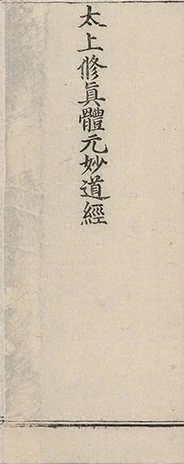 太上修真體元妙道經